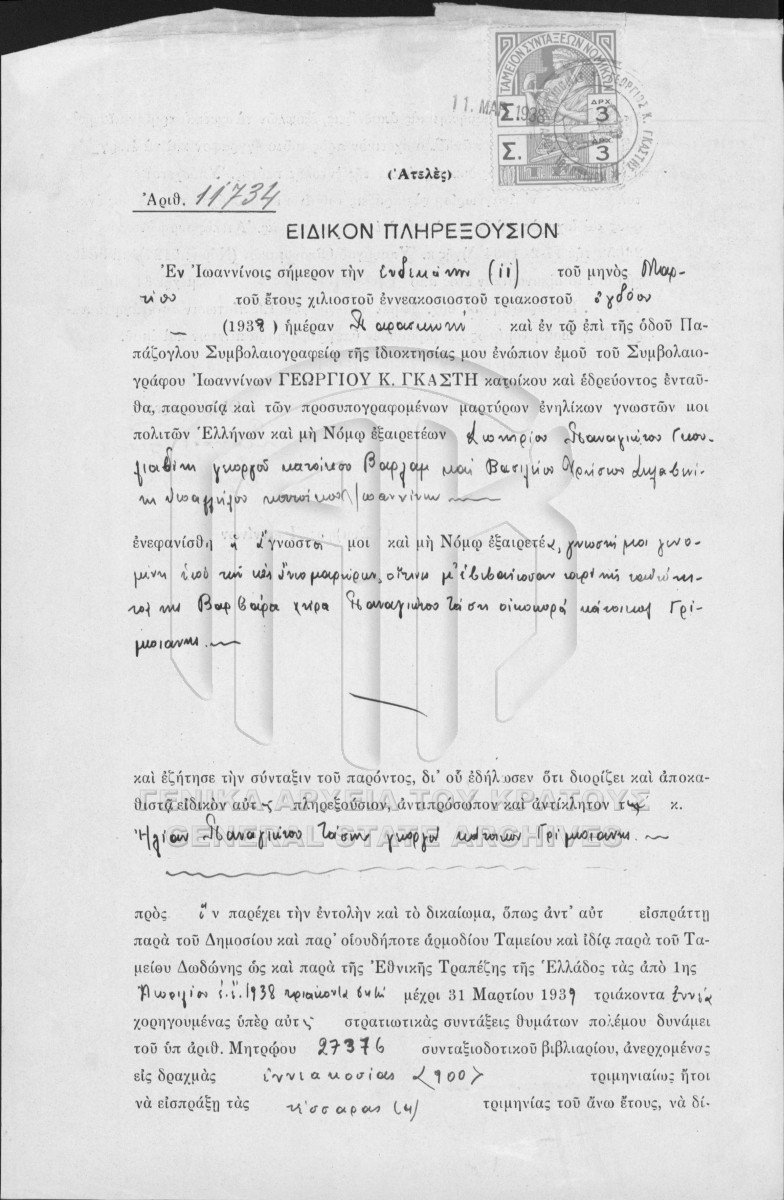 ΤΑΜΕΙΟΝ ΣΥΝΤΑΞΕΩΝ ΝΟΜΙΚΩΝ
11. ΜΑΡ. 1938
Σ. ΔΡΧ 3
Σ. ΔΡΧ 3
ΓΕΩΡΓΙΟΣ Κ. ΓΚΑΣΤΗΣ
(Ἀτελὲς)
Ἀριθ. 11734
ΕΙΔΙΚΟΝ ΠΛΗΡΕΞΟΥΣΙΟΝ
Ἐν Ἰωαννίνοις σήμερον τὴν ἑνδεκάτην (11) τοῦ μηνὸς Μαρ-
τίου τοῦ ἔτους χιλιοστοῦ ἐννεακοσιοστοῦ τριακοστοῦ ὀγδόου
(1938) ἡμέραν Παρασκευὴ καὶ ἐν τῷ ἐπὶ τῆς ὁδοῦ Πα-
πάζογλου Συμβολαιογραφείῳ τῆς ἰδιοκτησίας μου ἐνώπιον ἐμοῦ τοῦ Συμβολαιο-
γράφου Ἰωαννίνων ΓΕΩΡΓΙΟΥ Κ. ΓΚΑΣΤΗ κατοίκου καὶ ἑδρεύοντος ἐνταῦ-
θα, παρουσίᾳ καὶ τῶν προσυπογραφομένων μαρτύρων ἐνηλίκων γνωστῶν μοι
πολιτῶν Ἑλλήνων καὶ μὴ Νόμῳ ἐξαιρετέων Σωτηρίου Παναγιώτου
γεωργοῦ κατοίκου Βαρλαὰμ καὶ Βασιλείου Χρήστου
ὑπαλλήλου κατοίκου Ἰωαννίνων
ἐνεφανίσθη ἡ ἄγνωστός μοι καὶ μὴ Νόμῳ ἐξαιρετέα, γνωστή μοι γενο-
μένη ὑπὸ τῶν ἄνω μαρτύρων, οἵτινες μ' ἐβεβαίωσαν περὶ τῆς ταυτότη-
τος της Βαρβάρα χήρα Παναγιώτου Τάση οἰκοκυρὰ κάτοικος

καὶ ἐζήτησε τὴν σύνταξιν τοῦ παρόντος, δι' οὗ ἐδήλωσεν ὅτι διορίζει καὶ ἀποκα-
θιστᾷ εἰδικὸν αὐτῆς πληρεξούσιον, ἀντιπρόσωπον καὶ ἀντίκλητον τὸν κ.
ΓΕΝΙΚΑ ΑΡΧΕΙΑ ΤΟΥ ΚΡΑΤΟΥΣ
GENERAL STATE ARCHIVES
Ἠλίαν Παναγιώτου Τάσην γεωργὸν κάτοικον
πρὸς ὃν παρέχει τὴν ἐντολὴν καὶ τὸ δικαίωμα, ὅπως ἀντ' αὐτ εἰσπράττῃ
παρὰ τοῦ Δημοσίου καὶ παρ' οἱουδήποτε ἁρμοδίου Ταμείου καὶ ἰδίᾳ παρὰ τοῦ Τα-
μείου Δωδώνης ὡς καὶ παρὰ τῆς Ἐθνικῆς Τραπέζης τῆς Ἑλλάδος τὰς ἀπὸ 1ης
Ἀπριλίου ἐ.ἔ. 1938 τριάκοντα ὀκτὼ μέχρι 31 Μαρτίου 1939 τριάκοντα ἐννέα
χορηγουμένας ὑπὲρ αὐτῆς στρατιωτικὰς συντάξεις θυμάτων πολέμου δυνάμει
τοῦ ὑπ ἀριθ. Μητρῴου 27376 συνταξιοδοτικοῦ βιβλιαρίου, ἀνερχομένας
εἰς δραχμὰς ἐννιακοσίας (900) τριμηνιαίως ἤτοι
νὰ εἰσπράξῃ τὰς τέσσαρας (4) τριμηνίας τοῦ ἄνω ἔτους, νὰ δί-